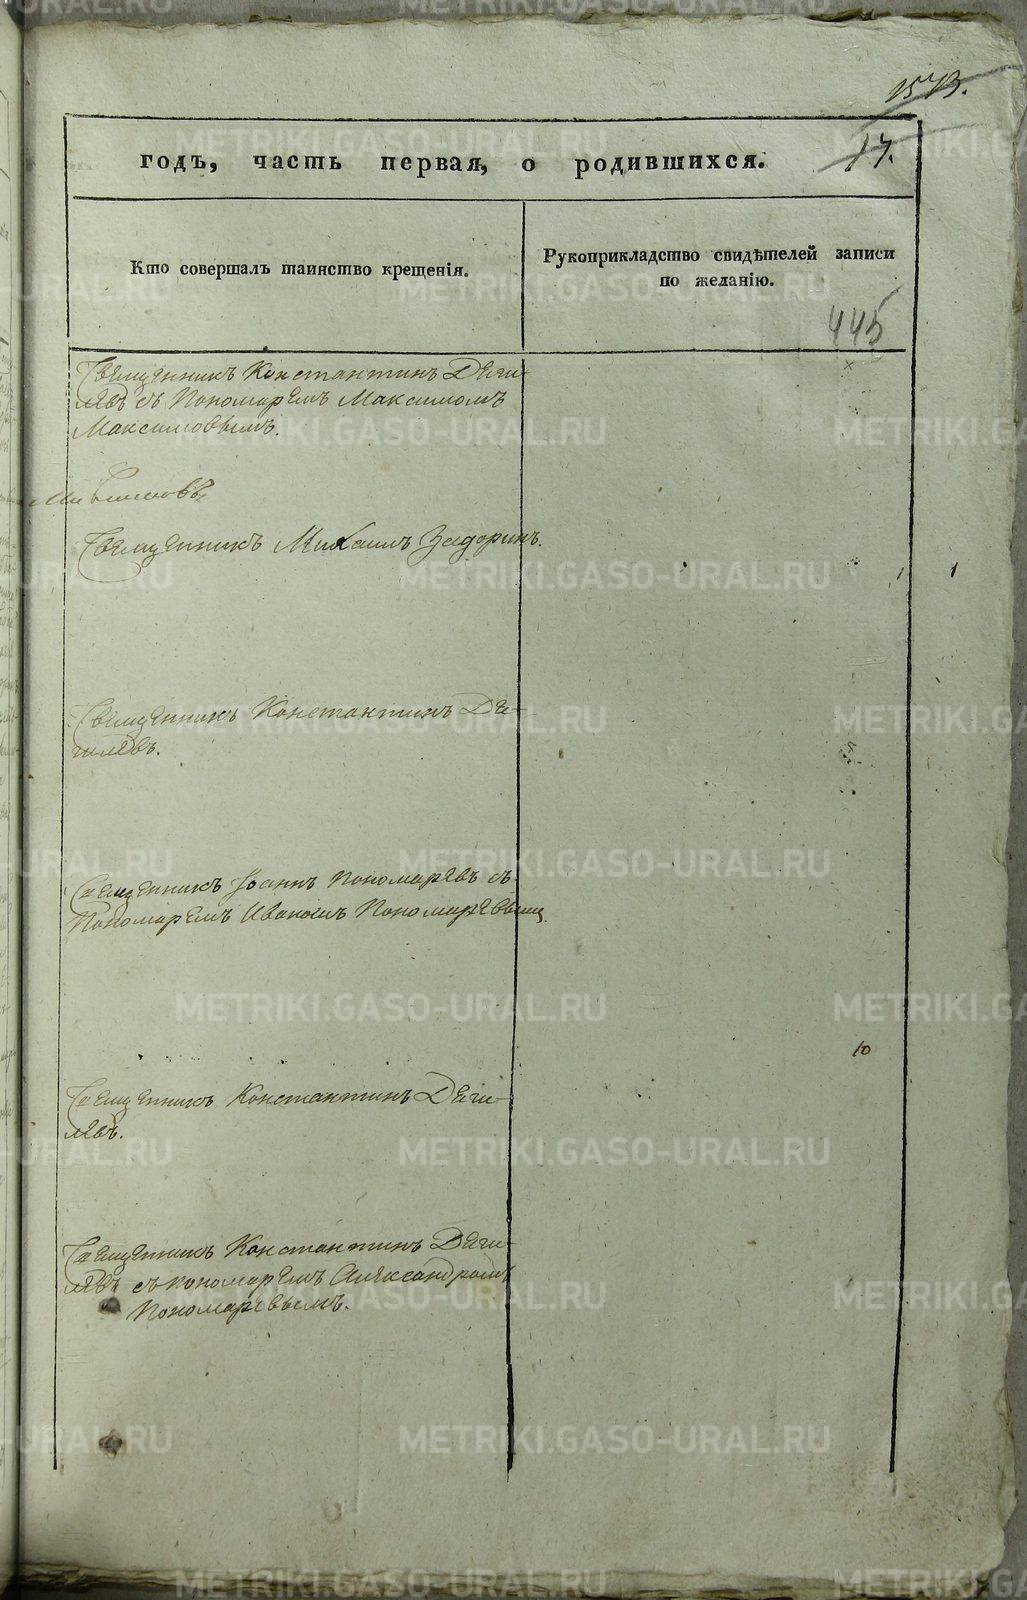 1573.
годъ, часть первая, о родившихся.
17.
Кто совершалъ таинство крещенія.
Рукоприкладство свидѣтелей записи
по желанію.
445
Священникъ Константинъ Деги-
левъ съ Пономаремъ Максимомъ
Максимовымъ.
Священникъ Михаилъ Задоринъ.
1
1
Священникъ Константинъ Де-
гилевъ.
Священникъ Іоаннъ Пономаревъ съ
Пономаремъ Иваномъ Пономаревымъ
10
Священникъ Константинъ Деги-
левъ.
Священникъ Константинъ Деги-
левъ съ пономаремъ Александромъ
Пономаревымъ.
METRIKI.GASO-URAL.RU